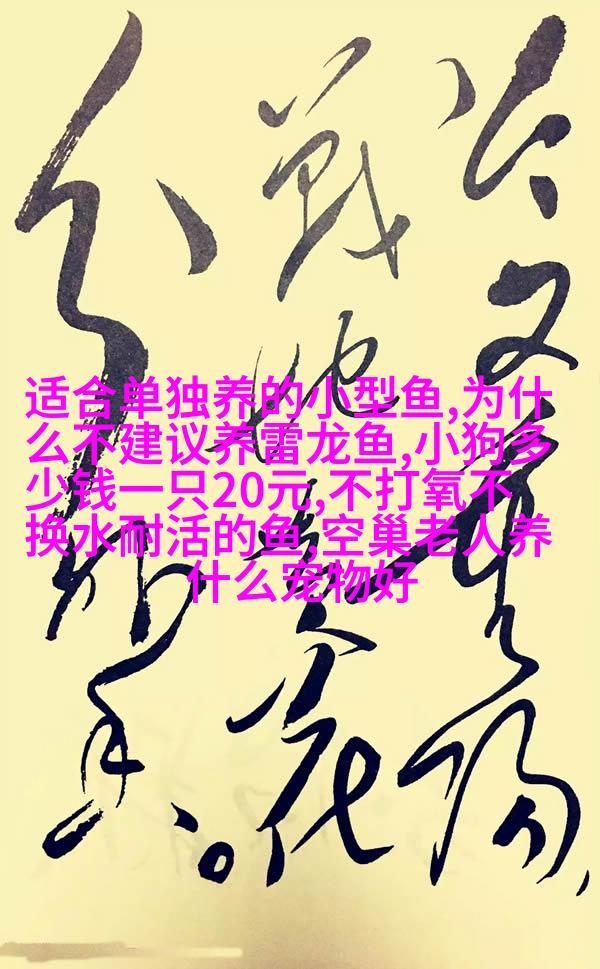 今又重陽,
戰地黄花
分外香。
适合单独养的小型鱼,为什
么不建议养雷龙鱼,小狗多
少钱一只20元,不打氧不
换水耐活的鱼,空巢老人养
什么宠物好